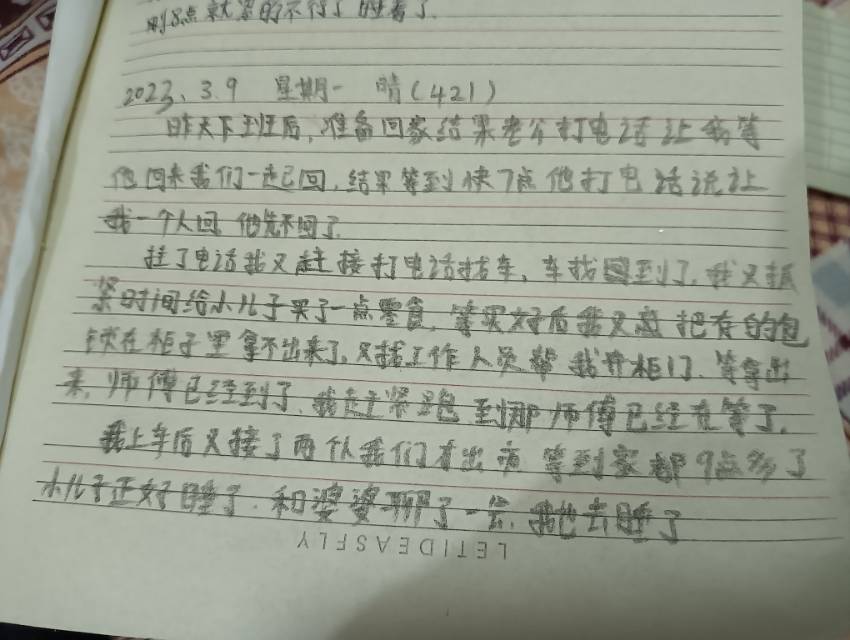 刚8点就累的不行了睡着了.
2023、3.9 星期一 晴(421)
昨天下班后,准备回家结果老公打电话让我等
他回来我们一起回,结果等到快7点他打电话说让
我一个人回 他先不回了.
挂了电话我又赶接打电话找车,车找到了,我又抓
紧时间给小儿子买了一点零食,等买好后我又把有的包
锁在柜子里拿不出来了,又找工作人员帮我开柜门、等拿出
来,师傅已经到了、我赶紧跑到那师傅已经在等了.
我上车后又接了两个人我们才出 等到家都9点多了
小儿子正好睡了.和婆婆聊了一会、我也去睡了
LETIDEASFLY